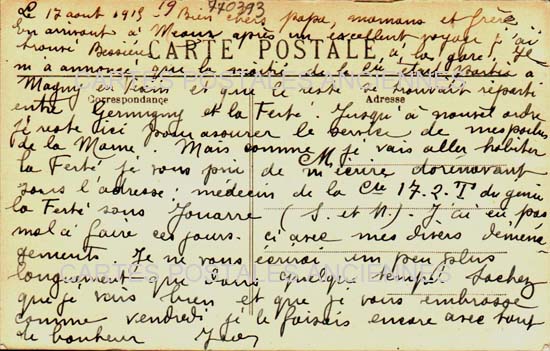 Le 17 aout 1915 19 770393
Bien chers papa, mamans et frère
En arrivant à Meaux après un excellent voyage j'ai
trouvé Bessieu à la gare. Il
CARTE POSTALE
m'a annoncé que la moitié de la Cie est partie à
CARTES POSTALES ANCIENNES
Magny et que le reste se trouvait réparti
Correspondance
Adresse
entre Germigny et la Ferté. Jusqu'à nouvel ordre
je reste ici pour assurer le service de mes postes
de la Marne. Mais comme je vais aller habiter
la Ferté je vous prie de m'écrire dorénavant
sous l'adresse : médecin de la Cie 17.2.T du génie
la Ferté sous Jouarre (S. et M.). J'ai eu pas
mal à faire ces jours-ci avec mes divers déména-
gements. Je ne vous écrirai un peu plus
CARTES POSTALES ANCIENNES
longuement que dans quelque temps. Sachez
que je vais bien et que je vous embrasse
comme vendredi je le faisais encore avec tant
de bonheur